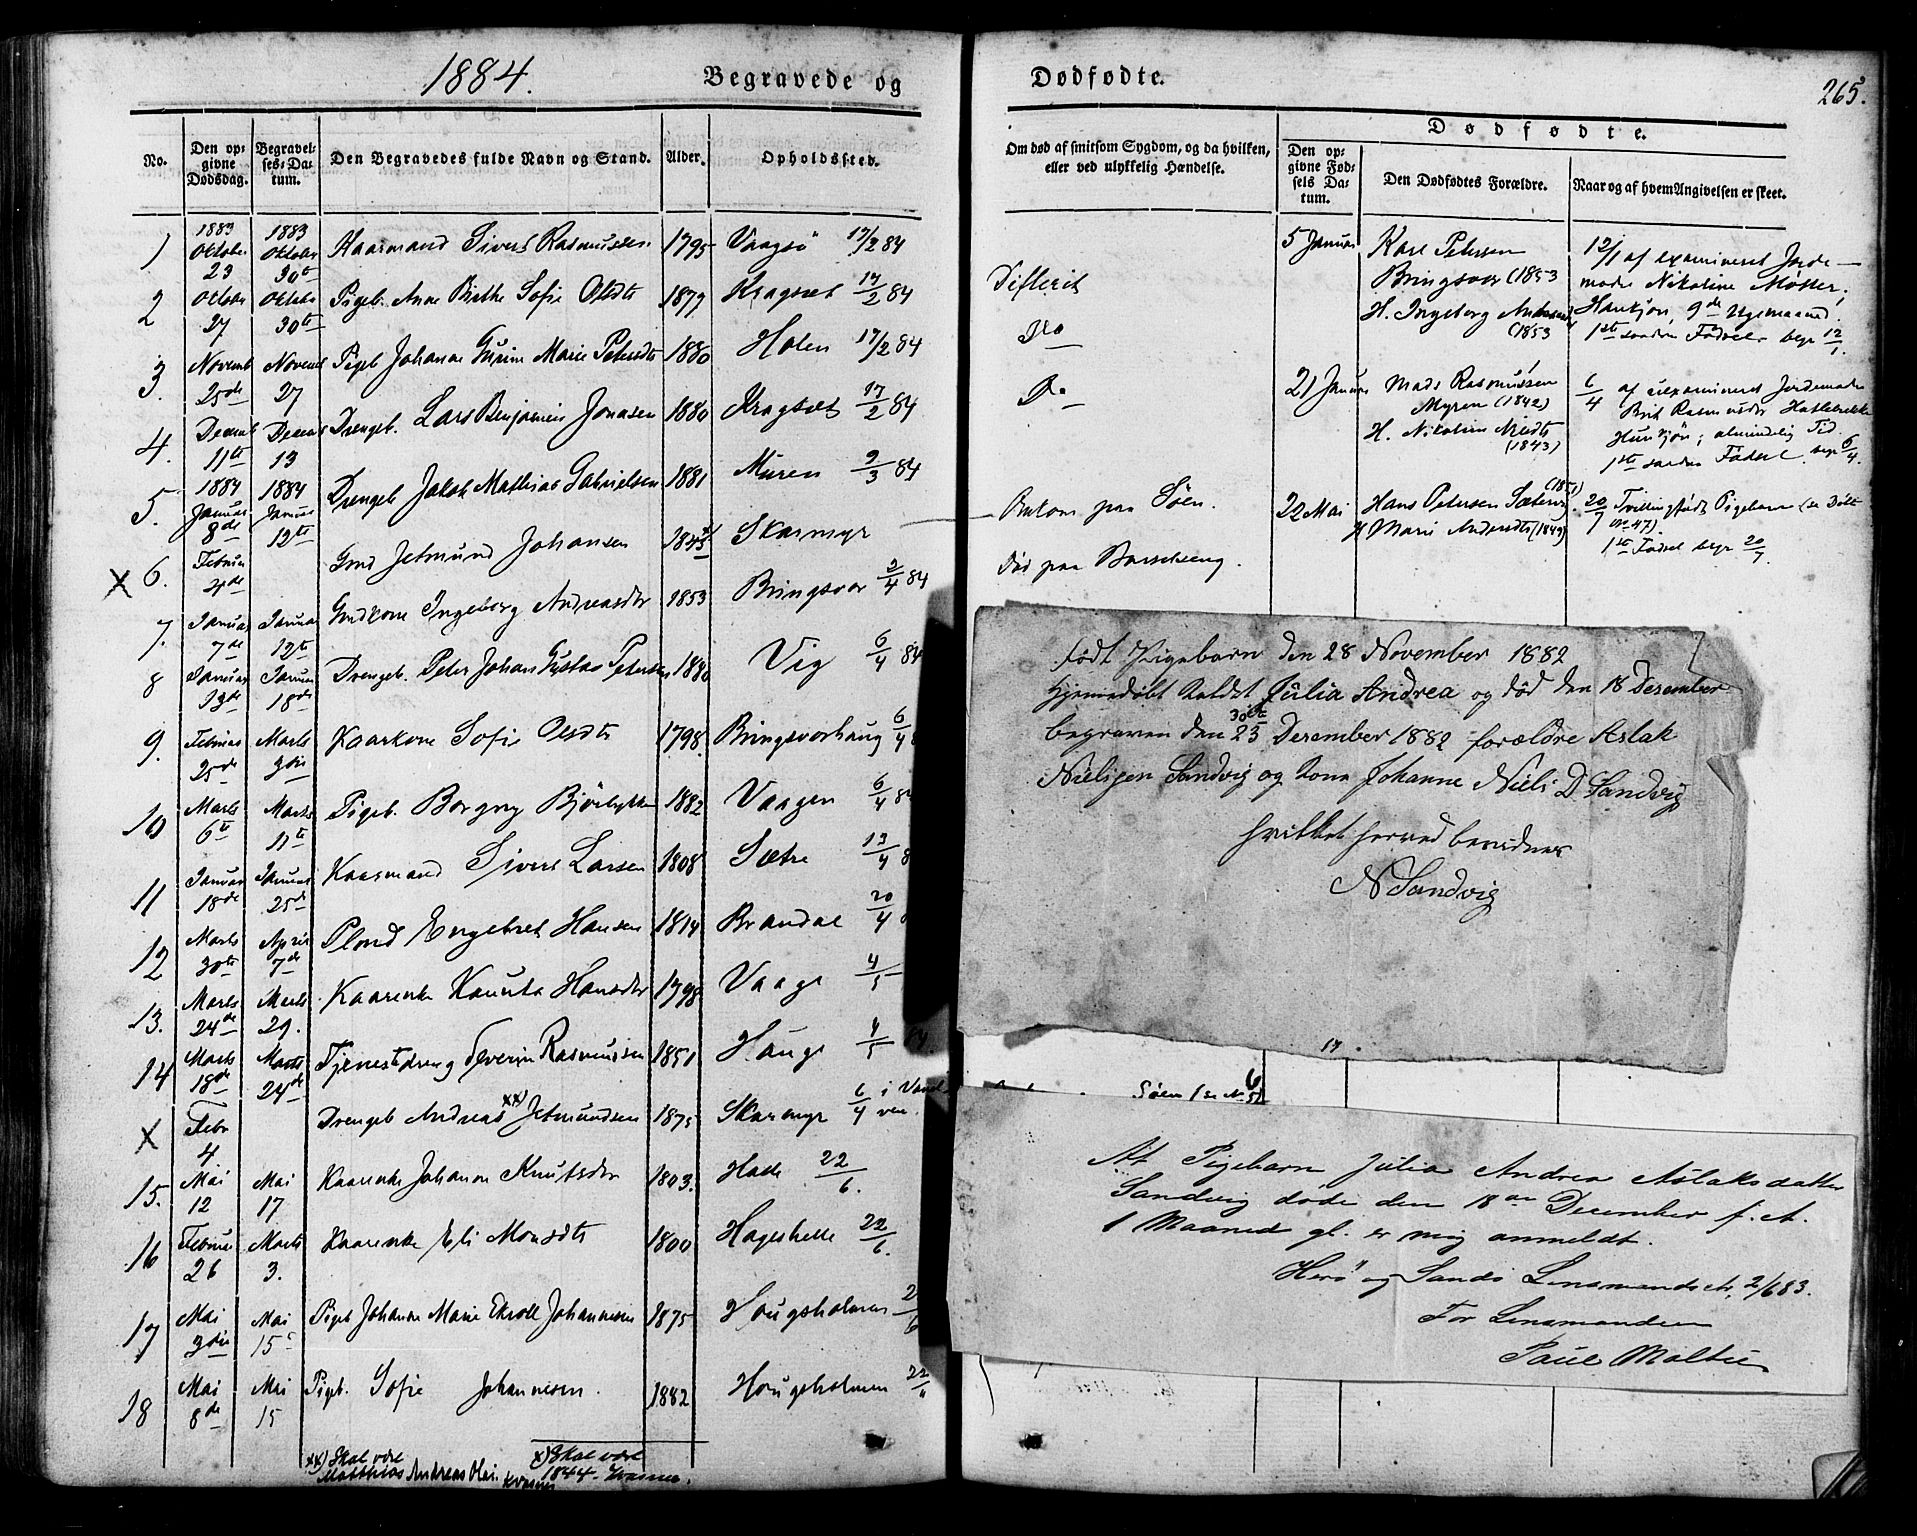 1884.
Begravede og
Dødfødte.
265.
No.
Den opgivne Dødsdag.
Begravelses-Datum.
Den Begravedes fulde Navn og Stand.
Alder.
Opholdssted.
Om død af smitsom Sygdom, og da hvilken,
eller ved ulykkelig Hændelse.
Dødfødte.
Den opgivne Fødsels Datum.
Den Dødfødtes Forældre.
Naar og af hvem Angivelsen er skeet.
1 1883 Oktober 23 1883 Oktober 30te Kaarmand Sivert Rasmussen 1795 Vaagsø 17/2 84
2 Octobr 27 Octobr 30te Pigeb. Anne Birthe Sofie Olsdtr 1879 Kragset 17/2 84 Difterit
3. Novemb 25de Novemb 27 Pigeb Johanne Gurine Marie Petersdtr 1880 Holen 17/2 84 Do
4. Decemb 11te Decemb 13 Drengeb. Lars Benjamin Jonasen 1880 Kragset 17/2 84 Do
5. 1884 Januar 8de 1884 Januar 12te Drengeb Jakob Mathias Gabrielsen 1881 Muren 9/3 84
X 6. Februar 4de Gmd Jetmund Johansen 1843 x) Skarmyr paa Søen.
7. Januar 7de Januar 12te Gmdkone Ingeborg Andreasdtr 1853 Bringsvor 2/4 84 Død paa Barselseng.
8 Januar 13de Januar 18de Drengeb. Peter Johan Gustav Petersen 1880 Vig 6/4 84
9. Februar 25de Marts 3die Kaarkone Sofie Olsdtr 1798. Bringsvorhaug 6/4 8
10 Marts 6te Marts 11te Pigeb. Borgny Bjørlykke 1882 Vaagen 6/4 8
11 Januar 18de Januar 25de Kaarmand Sivert Larsen 1808 Sætre 13/4 8
12 Marts 30te April 7de Plond Engebret Hansen 1814 Brandal 20/4
13. Marts 24de Marts 29. Kaarenke Knuta Hansdtr 1798 Vaage 4/5
14 Marts 18de Marts 24de Tjenestdreng Severin Rasmussen 1851 Hauge 4/5 84
X Febr 4 Drengeb Andreas xx) Jetmundsen 1875 Skarmyr 6/4 i Vand-
ven. Søen (se No 6
15. Mai 12 Mai 17 Kaarenke Johanne Knutsdtr 1803. Hatle 22/6.
16 Februar 26 Marts 3. Kaarenke Eli Monsdtr 1800 Hageshelle 22/6.
17 Mai 3die Mai 15 Pigeb Johanne Marie Ekroll Johannesen 1875 Hougsholmen 2/6
18 Mai 8de Mai 15 Pigeb. Sofie Johannesen. 1882 Hougsholmen 22/6
xx) Skal være
Matthias Andreas Olai.
x) Skal være
1844
5 Januar Karl Petersen
Bringsvor (1853
H. Ingeborg Andreasd
(1853
12/1 af examineret Jorde-
moder Nikoline Møller;
Hankjøn, 9de Ugemaaned.
1ste saadan Fødsel begr 12/1.
21 Januar Mads Rasmussen
Myren (1842)
H. Nikoline Nilsdtr
(1843)
6/4 af uexamineret Jordemoder
Brit Rasmusdtr Hatlebrekke
Hunkjøn; almindelig Tid.
1ste saadan Fødsel begr 6/4.
22 Mai Hans Petersen Sætren (1851).
H Marie Andersdtr (1849)
20/7 Tvillingfødt Pigebarn (se Døbt
no 47)
1ste Fødsel begr 20/7.
født Pigebarn den 28 November 1882
hjemmedøbt kaldet Julia Andrea og død den 18 Desember
begraven den 30te 23 Desember 1882 forældre Aslak
Nielsen Sandvig og kona Johanne Niels D. Sandvig
hvilket herved bevidner
N Sandvig
17
At Pigebarn Julia Andrea Aslaksdatter
Sandvig døde den 18de December f. A.
1 Maaned gl. er mig anmeldt.
Herø og Sandø Lensmandsktr, 2/6 83.
For Lensmanden
Paul Moltu